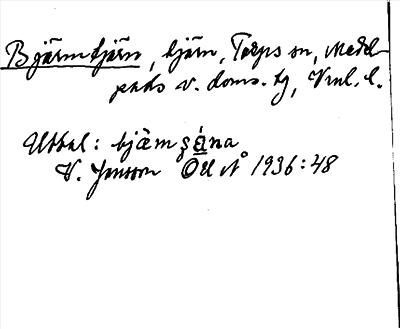 Bjärmtjärn, tjärn, Torps sn, Medel
pads v. doms. tg, Vnl. l.
Uttal: bjä̀mʂɑ́na
V. Jonsson OUÅ 1936:48